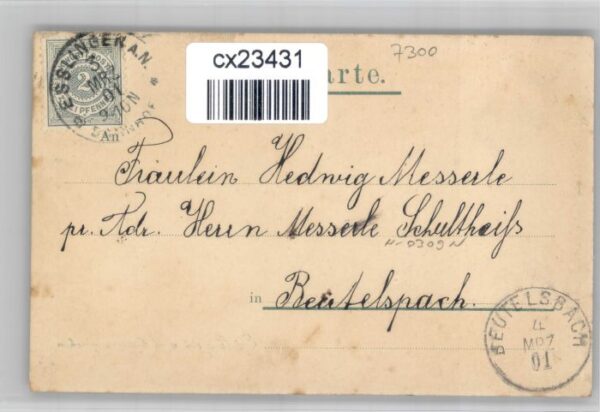 cx23431
7300
arte.
ESSLINGEN A.N.
MRZ
01
BAHNHOF
2
PFENNIG
An
Fräulein Hedwig Messerle
pr. Adr. Herrn Messerle Schultheiß
in Beutelspach.
BEUTELSBACH
4
MRZ
01